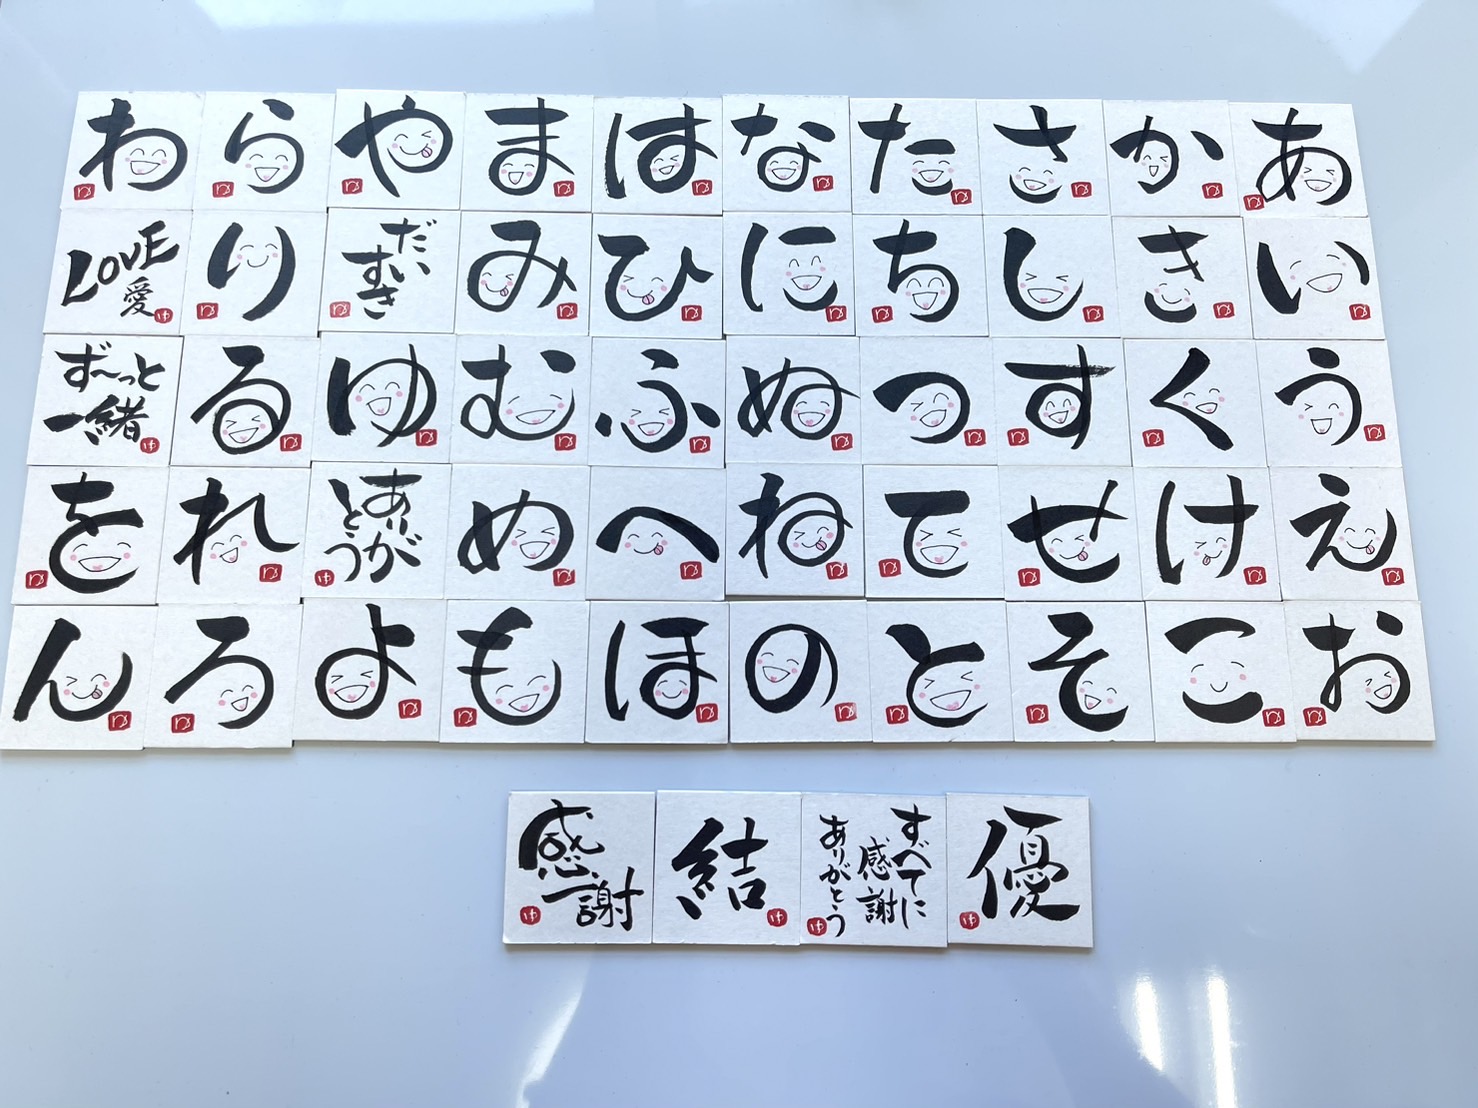 あいうえお
かきくけこ
さしすせそ
たちつてと
なにぬねの
はひふへほ
まみむめも
や
だいすき
ゆ
ありがとう
よ
らりるれろ
わ
LOVE
愛
ず～っと
一緒
をん
感謝
結
すべてに
感謝
ありがとう
優